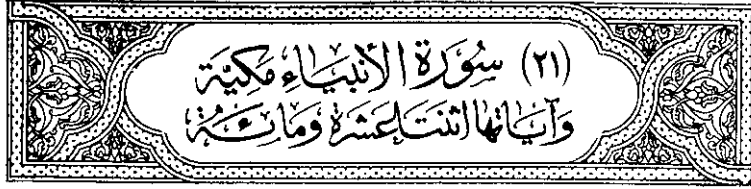 (٢١) سُورَة الأنبيَاء مَكيَّة
وَآيَاتها اثنتَا عَشرَة وَمائة